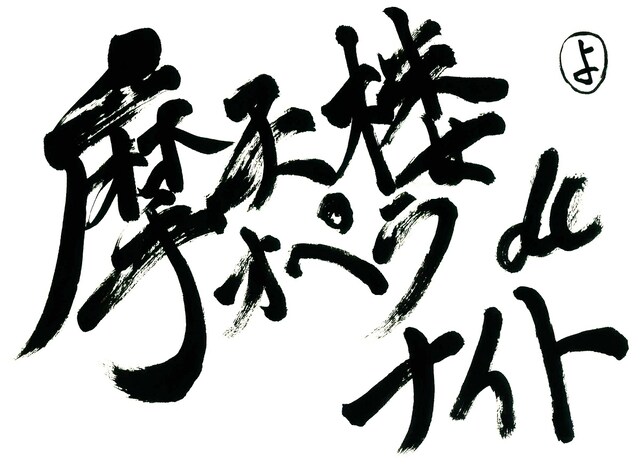 摩天楼
オペラ de
ナイト
よ